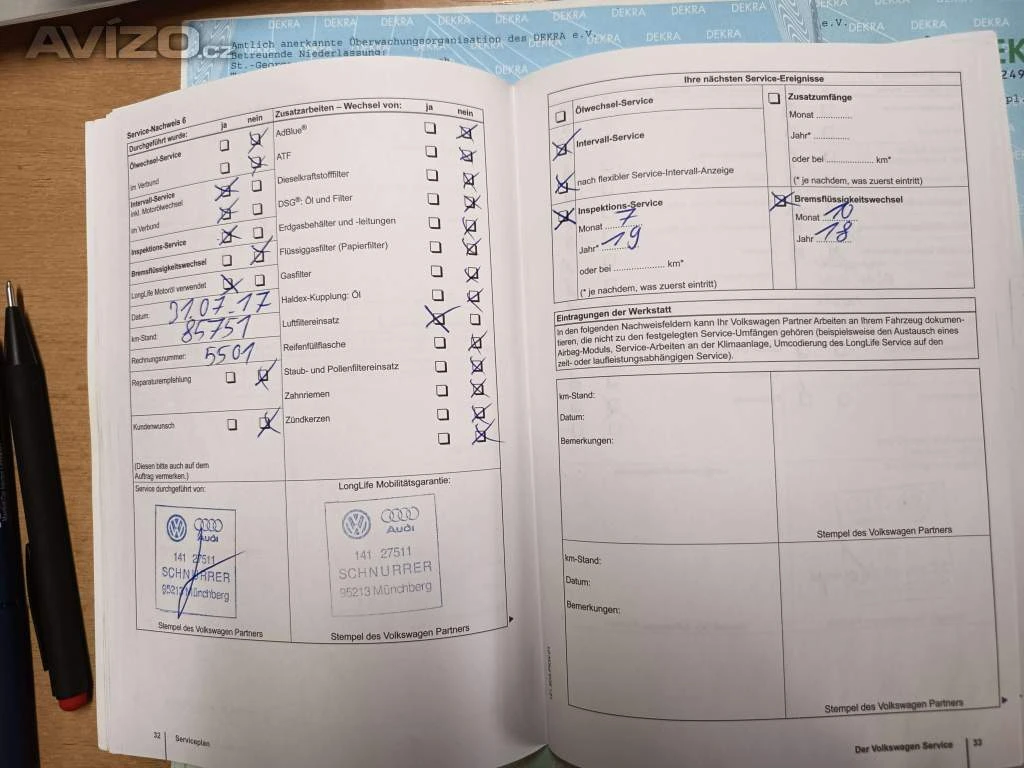 AVÍZO.cz
DEKRA DEKRA DEKRA DEKRA DEKRA
Amtlich anerkannte Überwachungsorganisation des DEKRA e.V.
Betreuende Niederlassung:
St.-Georg
e.V.
Service-Nachweis 6
Durchgeführt wurde: ja nein
Ölwechsel-Service
im Verbund
Intervall-Service
inkl. Motorölwechsel
im Verbund
Inspektions-Service
Bremsflüssigkeitswechsel
LongLife Motoröl verwendet
Datum: 31.07.17
km-Stand: 85751
Rechnungsnummer: 5501
Reparaturempfehlung
Kundenwunsch
(Diesen bitte auch auf dem
Auftrag vermerken.)
Service durchgeführt von:
Audi
141 27511
SCHNURRER
95213 Münchberg
Stempel des Volkswagen Partners
Zusatzarbeiten – Wechsel von: ja nein
AdBlue®
ATF
Dieselkraftstofffilter
DSG®: Öl und Filter
Erdgasbehälter und -leitungen
Flüssiggasfilter (Papierfilter)
Gasfilter
Haldex-Kupplung: Öl
Luftfiltereinsatz
Reifenfüllflasche
Staub- und Pollenfiltereinsatz
Zahnriemen
Zündkerzen
LongLife Mobilitätsgarantie:
Audi
141 27511
SCHNURRER
95213 Münchberg
Stempel des Volkswagen Partners
32 Serviceplan
Ihre nächsten Service-Ereignisse
Ölwechsel-Service
Intervall-Service
nach flexibler Service-Intervall-Anzeige
Zusatzumfänge
Monat ..............
Jahr* ..............
oder bei ..................... km*
(* je nachdem, was zuerst eintritt)
Inspektions-Service
Monat 7
Jahr* 19
oder bei ..................... km*
(* je nachdem, was zuerst eintritt)
Bremsflüssigkeitswechsel
Monat 10
Jahr 18
Eintragungen der Werkstatt
In den folgenden Nachweisfeldern kann Ihr Volkswagen Partner Arbeiten an Ihrem Fahrzeug dokumen-
tieren, die nicht zu den festgelegten Service-Umfängen gehören (beispielsweise den Austausch eines
Airbag-Moduls, Service-Arbeiten an der Klimaanlage, Umcodierung des LongLife Service auf den
zeit- oder laufleistungsabhängigen Service).
km-Stand:
Datum:
Bemerkungen:
Stempel des Volkswagen Partners
km-Stand:
Datum:
Bemerkungen:
Stempel des Volkswagen Partners
Der Volkswagen Service 33